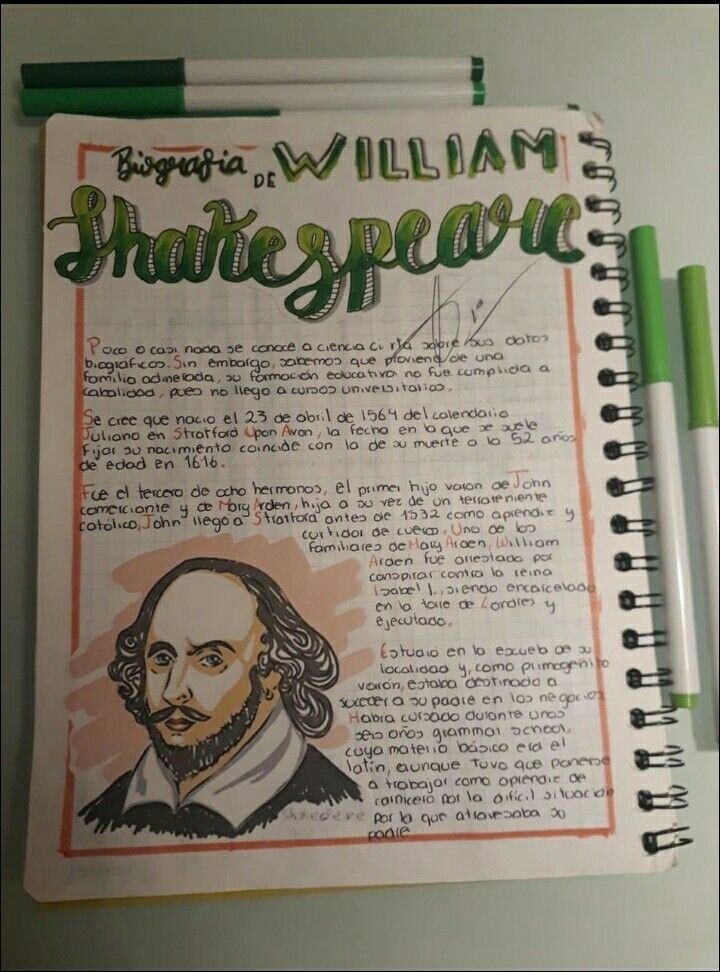 Biografia DE WILLIAM
Shakespeare
Poco o casi nada se conoce a ciencia cierta sobre sus datos
biograficos. Sin embargo, sabemos que proviene de una
familia adinerada, su formación educativa no fue cumplida a
cabalidad, pues no llego a cursos universitarios.
Se cree que nacio el 23 de abril de 1564 del calendario
Juliano en Stratford Upon Avon, la fecha en la que se suele
Fijar su nacimiento coincide con la de su muerte a la 52 años
de edad en 1616.
Fue el tercero de ocho hermanos, el primer hijo varon de John
comerciante y de Mary Arden, hija a su vez de un terrateniente
católico, John llego a Stratford antes de 1532 como aprendiz y
curtidor de cuero. Uno de los
familiares de Mary Arden, William
Arden fue arrestado por
conspirar contra la reina
Isabel I, siendo encarcelado
en la torre de Londres y
ejecutado.
Estudió en la escuela de su
localidad y, como primogenito
varón, estaba destinado a
suceder a su padre en los negocios
Habra cursado durante unos
seis años grammar school,
cuya materia básica era el
latin, aunque tuvo que ponerse
a trabajar como aprendiz de
carnicero por la dificil situación
por la que atravesaba su
padre.